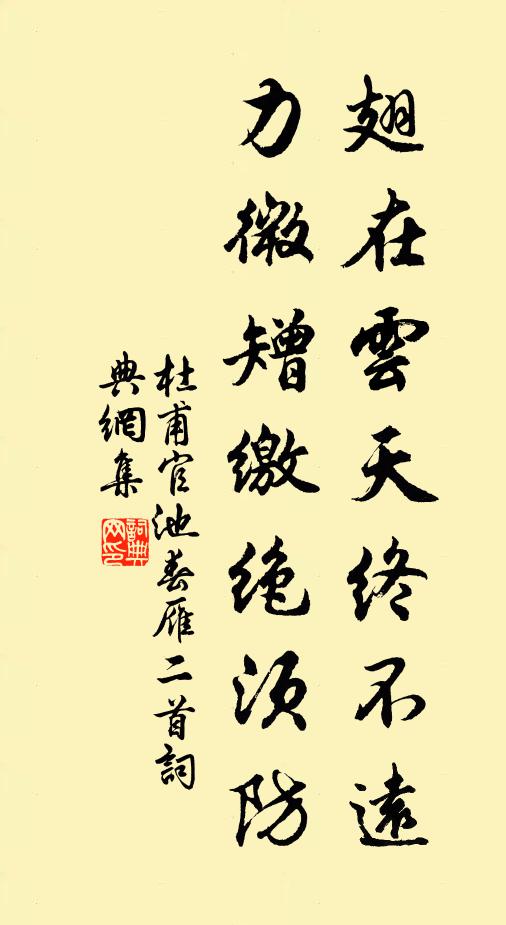 翅在雲天終不遠
力微矰繳絶須防
杜甫官池春雁二首詞
典網集
詞典網印